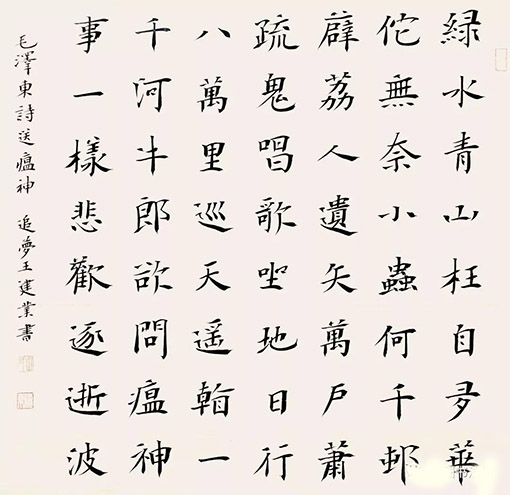 緑水青山枉自多華
佗無奈小蟲何千邨
薜荔人遺矢萬戶蕭
疏鬼唱歌坐地日行
八萬里巡天遥翰一
千河牛郎欲問瘟神
事一樣悲歡逐逝波
毛澤東詩送瘟神 追夢王建業書